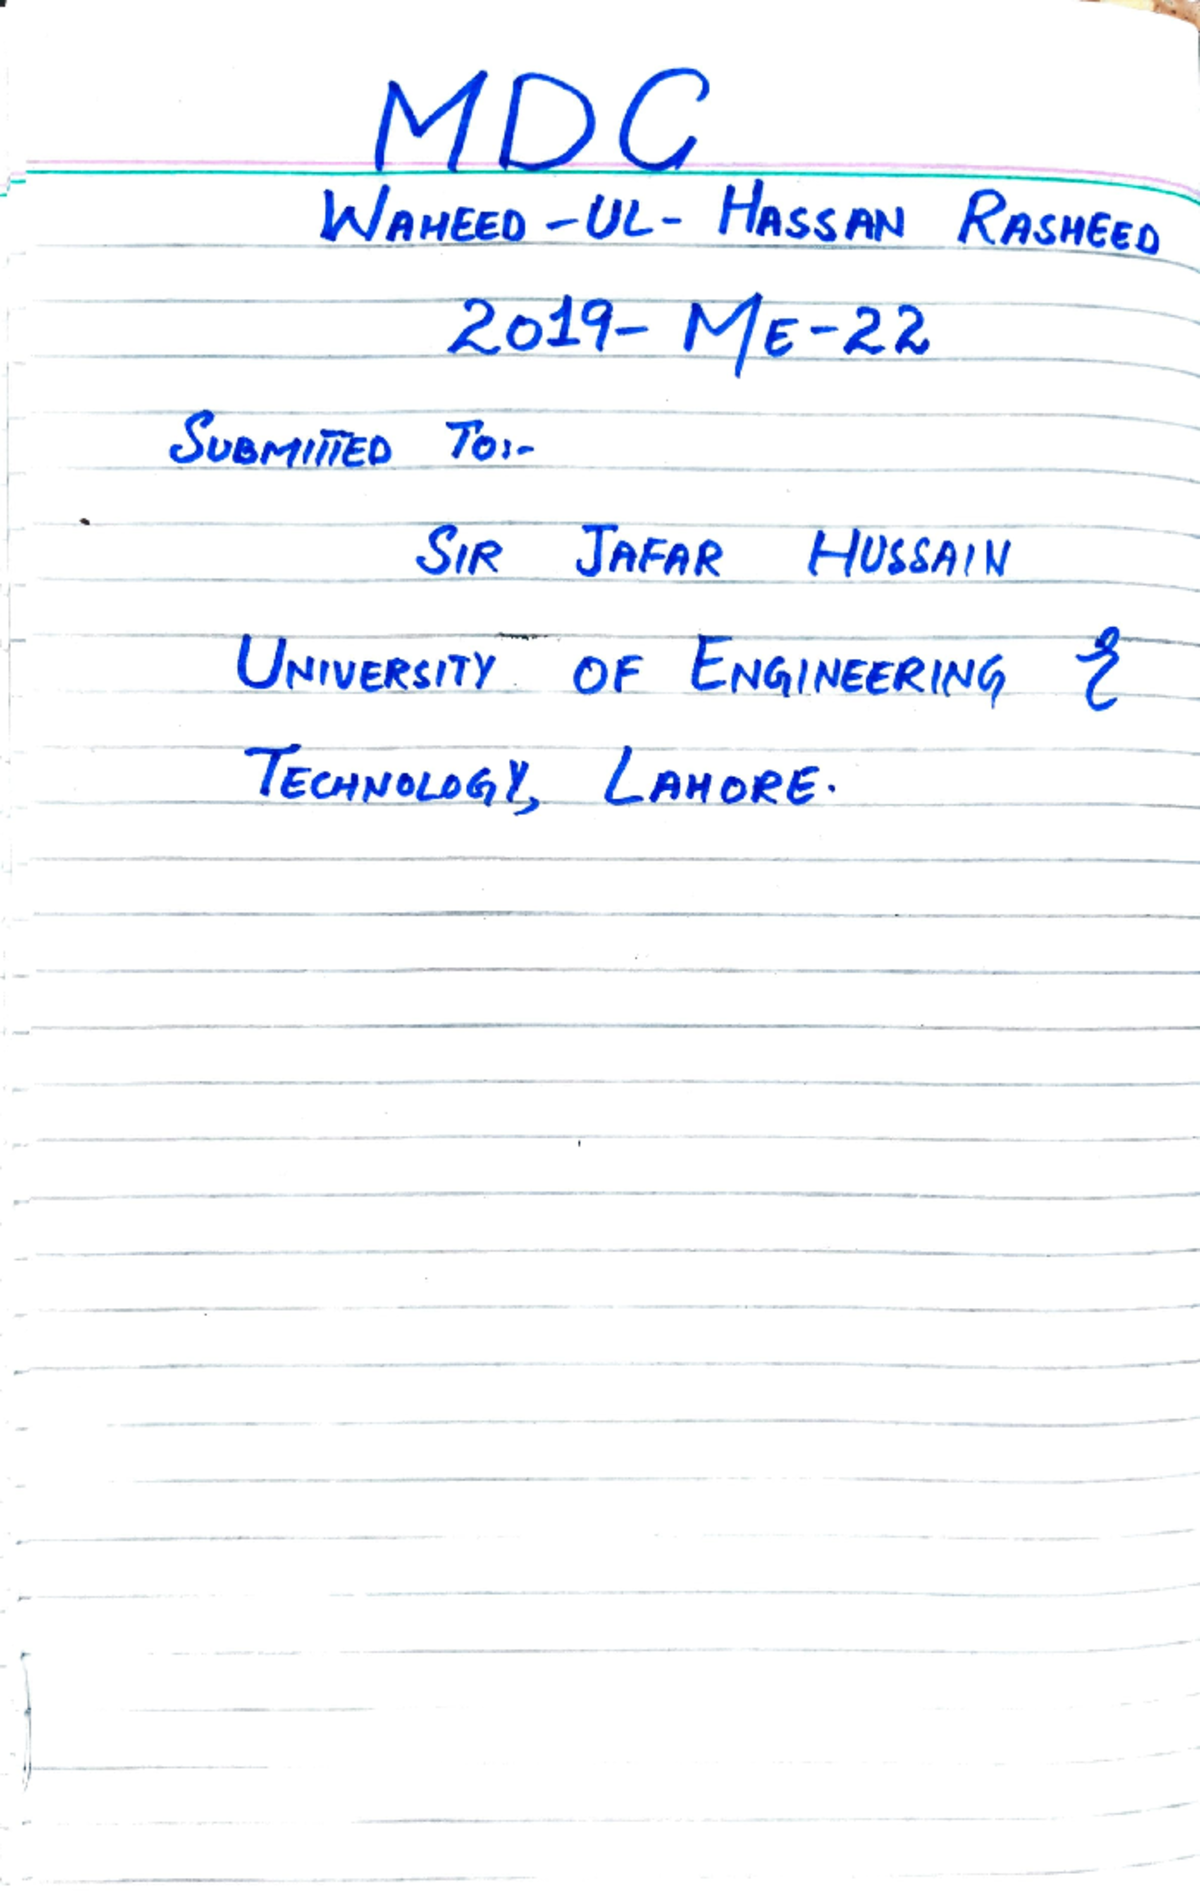 MDC
WAHEED-UL-HASSAN RASHEED
2019-ME-22
SUBMITTED TO:-
SIR JAFAR HUSSAIN
UNIVERSITY OF ENGINEERING &
TECHNOLOGY, LAHORE.